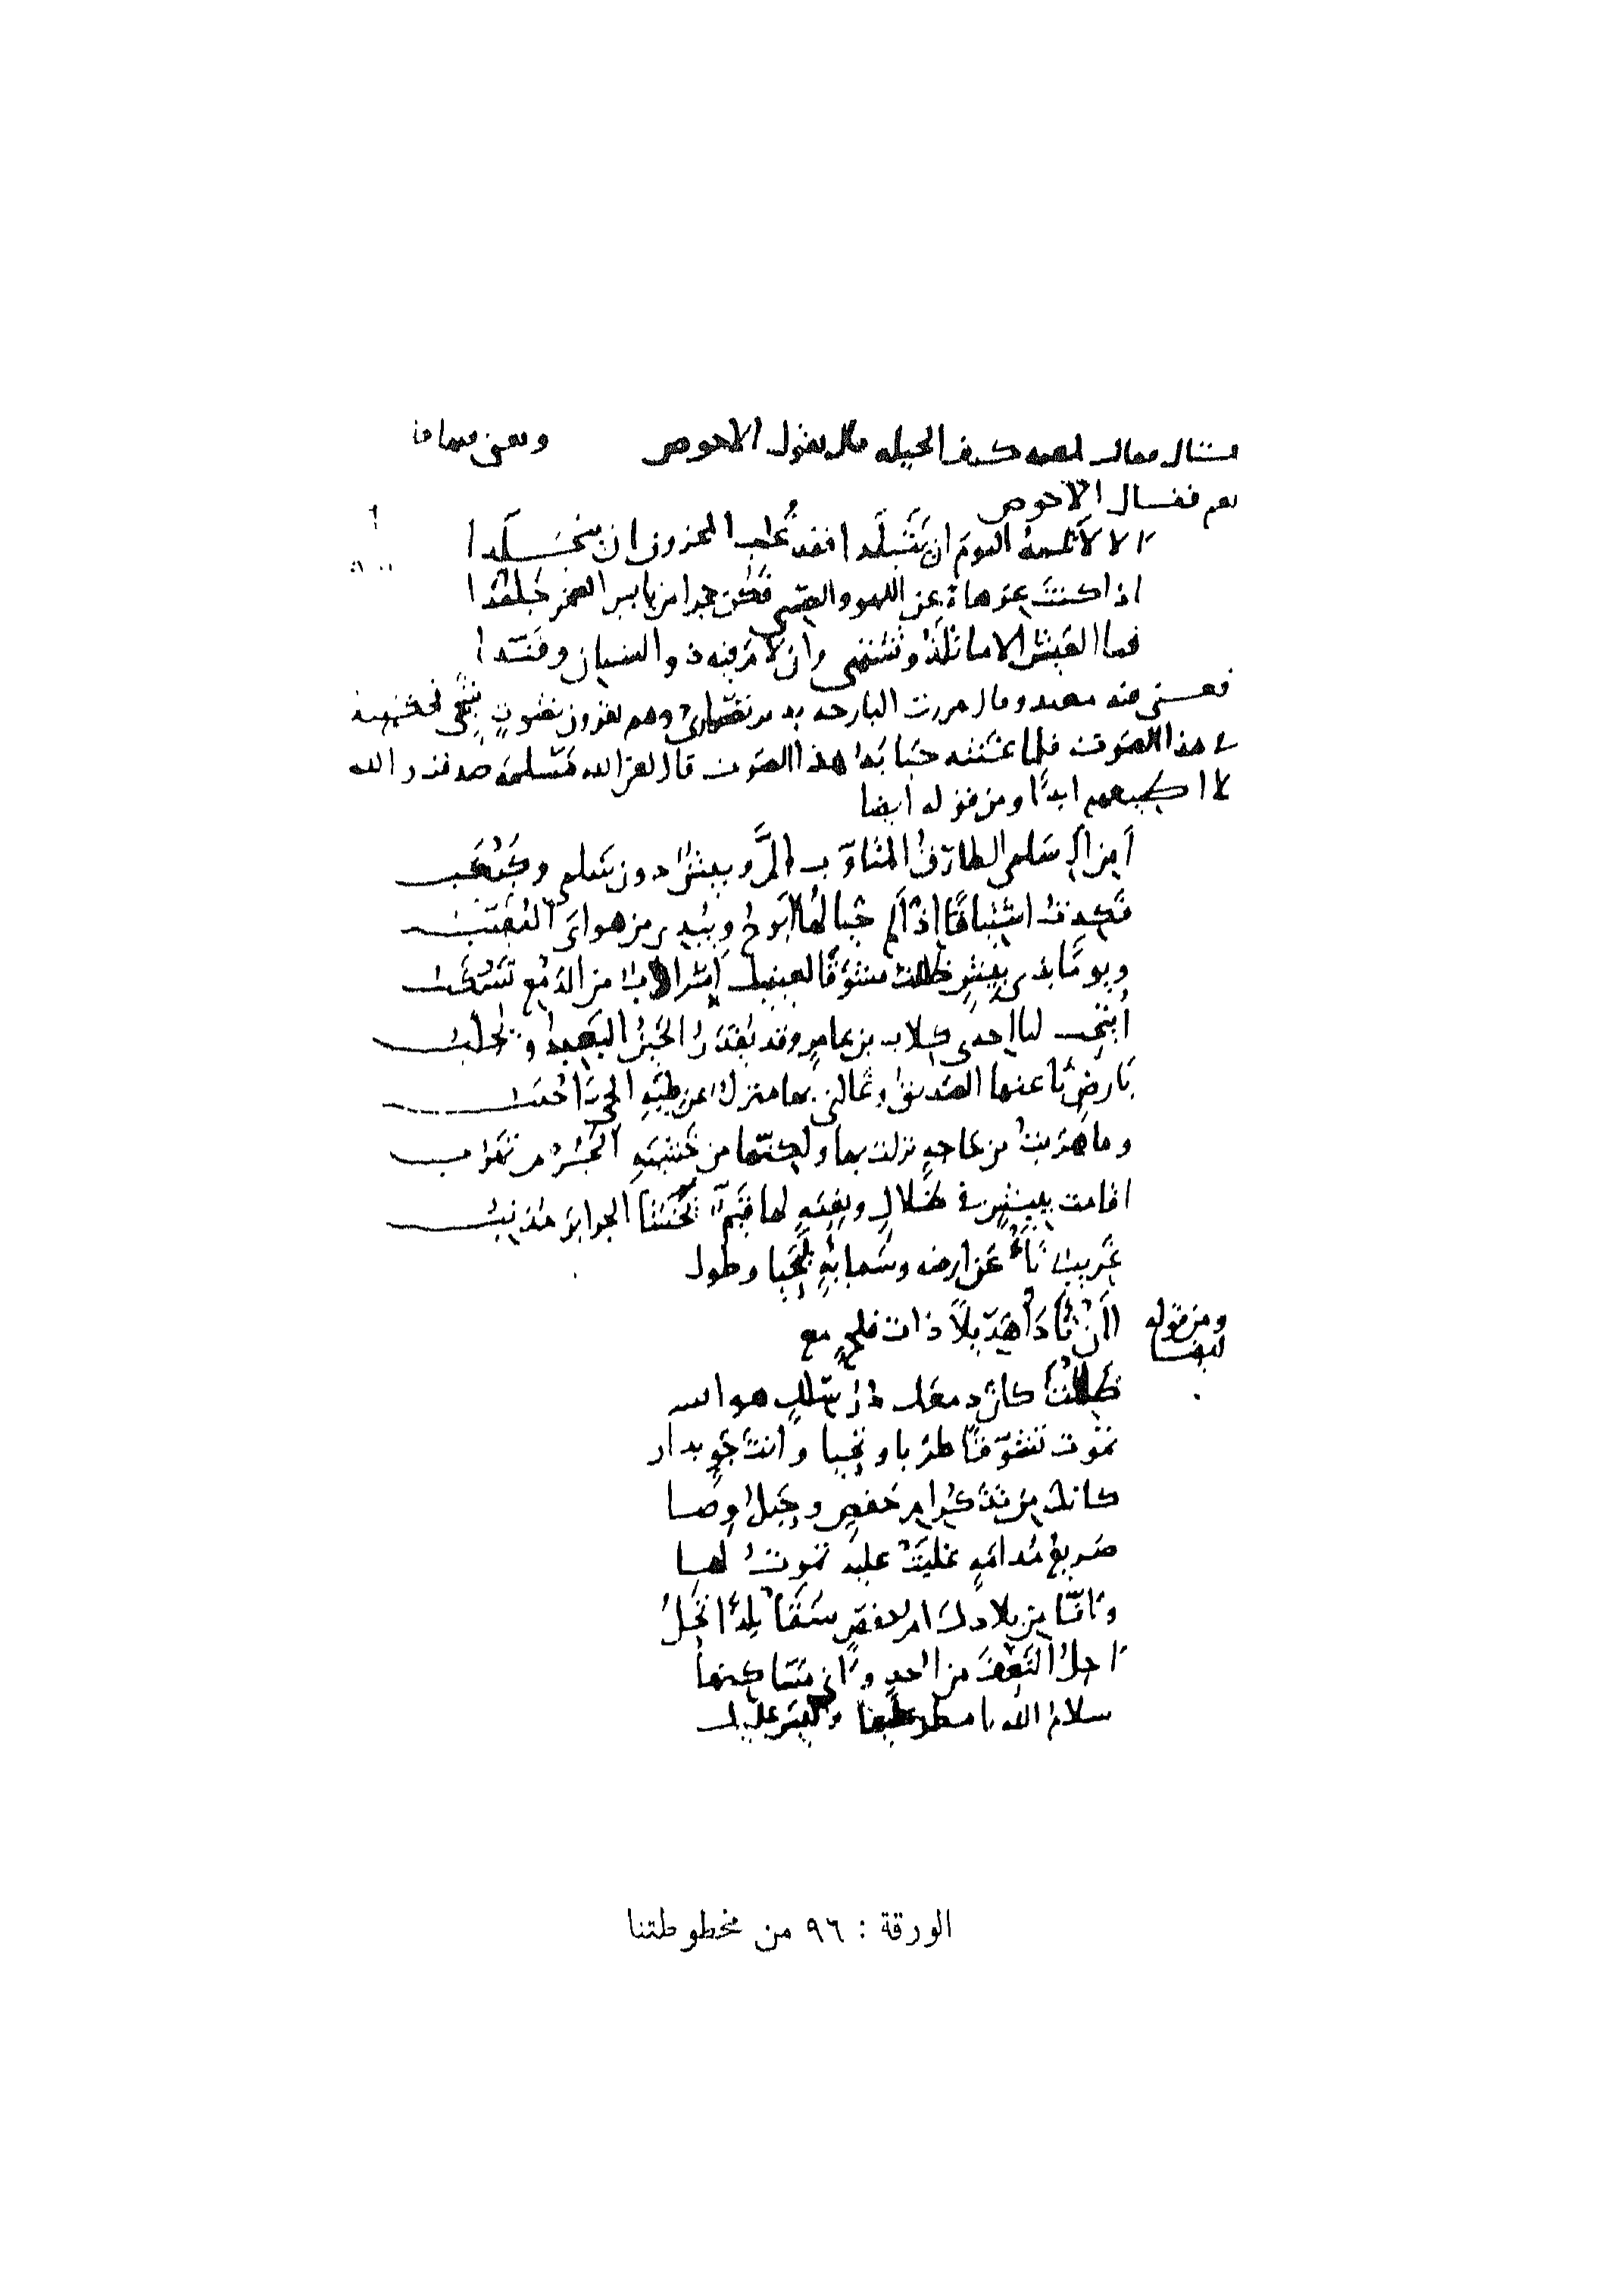 فقال معبد كيف الحيلة قال يقول الاحوص ونغنى فيها قا
نعم فقال الاحوص
الا لا تلمه اليوم ان يتبلدا فقد غلب المحزون ان يتجلدا
اذا كنت عزهاة عن اللهو والصبى فكن حجرا من يابس الصخر جلمدا
فما العيش الا ما تلذ وتشتهى وان لام فيه ذو الشنان وفندا
فغنى فيه معبد وقال مررت البارحة بدير نصارى وهم يقرون بصوت شجى فحكيته
فى هذا الصوت فلما غنته حبابة هذا الصوت قال لعن الله مسلمة صدقت والله
لا اطيعهم ابدا ومن قوله ايضا
أمن آل سلمى الطارق المتأوب ألم وبيش دون سلمى وكبكب
فكدت اشتياقا اذ ألم خيالها ابوح ويبدو من هواى المغيب
ويوما بذى بيش ظللت تشوقا لعينيك اسراب من الدمع تسكب
أتيح لنا احدى كلاب بن عامر وقد يقدر الحين البعيد ويجلب
بارض نأى عنها الصديق وغالنى بها منزل عن طية الحى اجنب
وما هربت من حاجة نزلت بها ولكنها من خشية الجرم تهرب
اقامت ببيش فى ظلال ونعمة لها قيم يخشى الجرائر مذنب
غريب نأى عن ارضه وسمائه ليحيا وطول
ومن قوله ايضا
أأن نادى هديلا ذات فلج مع
ظللت كأن دمعك در سلك هوا
تموت تشوقا طربا وتحيا وانت جو بدا
كانك من تذكر ام حفص وحبل وصا
صريع مدامة غلبت عليه تموت لها
وأنى من بلادك ام حفص سقى بلدا تحل
احل النعف من احد وأدنى مساكنها
سلام الله يا مطر عليها وليس عليك
الورقة : ٩٦ من مخطوطتنا